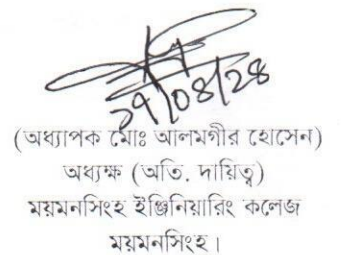 ২৭/০৪/২৪
(অধ্যাপক মোঃ আলমগীর হোসেন)
অধ্যক্ষ (অতি. দায়িত্ব)
ময়মনসিংহ ইঞ্জিনিয়ারিং কলেজ
ময়মনসিংহ।